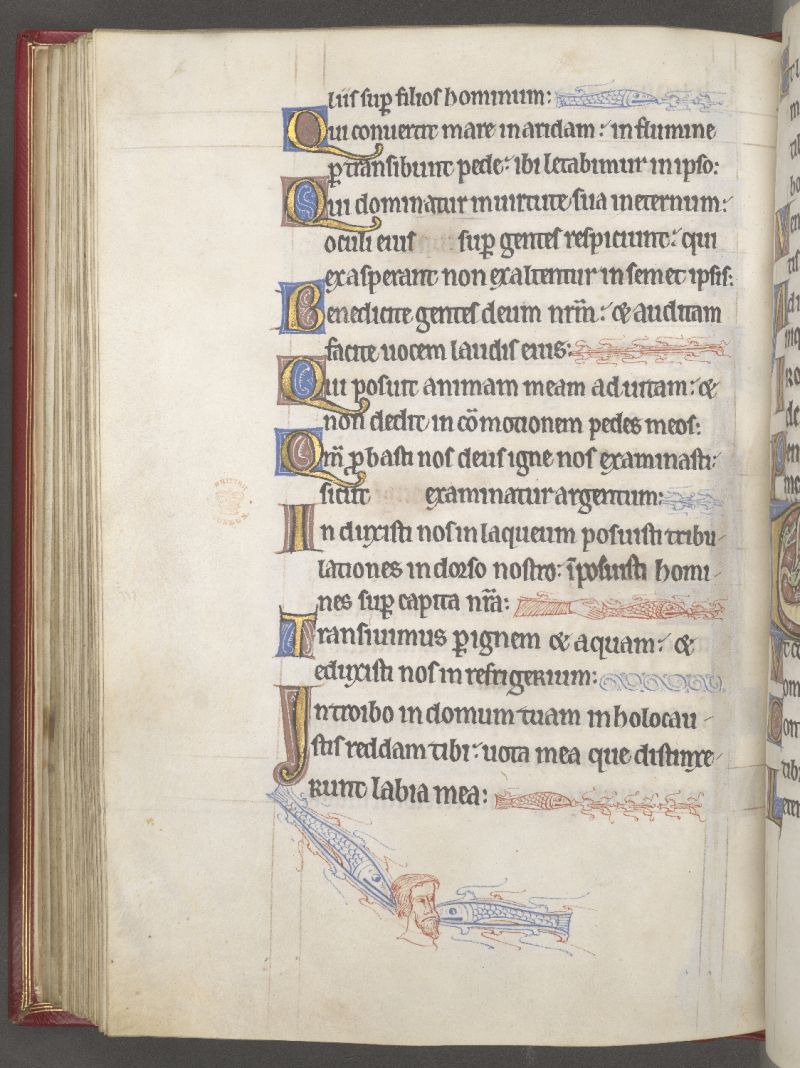 liis sup̱ filios hominum:
Qui conuertit mare in aridam: in flumine
ꝑtransibunt pede: ibi letabimur in ipso:
Qui dominatur in uirtute sua in eternum:
oculi eius sup̱ gentes respiciunt: qui
exasperant non exaltentur in semet ipsis:
Benedicite gentes deum nr̄m: & auditam
facite uocem laudis eius:
Qui posuit animam meam ad uitam: &
non dedit in cōmotionem pedes meos:
Qm̄ ꝓbasti nos deus igne nos examinasti:
sicut examinatur argentum:
Induxisti nos in laqueum posuisti tribu
lationes in dorso nostro: īposuisti homi
nes sup̱ capita nr̄a:
Transiuimus ꝑ ignem & aquam: &
eduxisti nos in refrigerium:
Introibo in domum tuam in holocau
stis reddam tibi: uota mea que distinxe
runt labia mea: